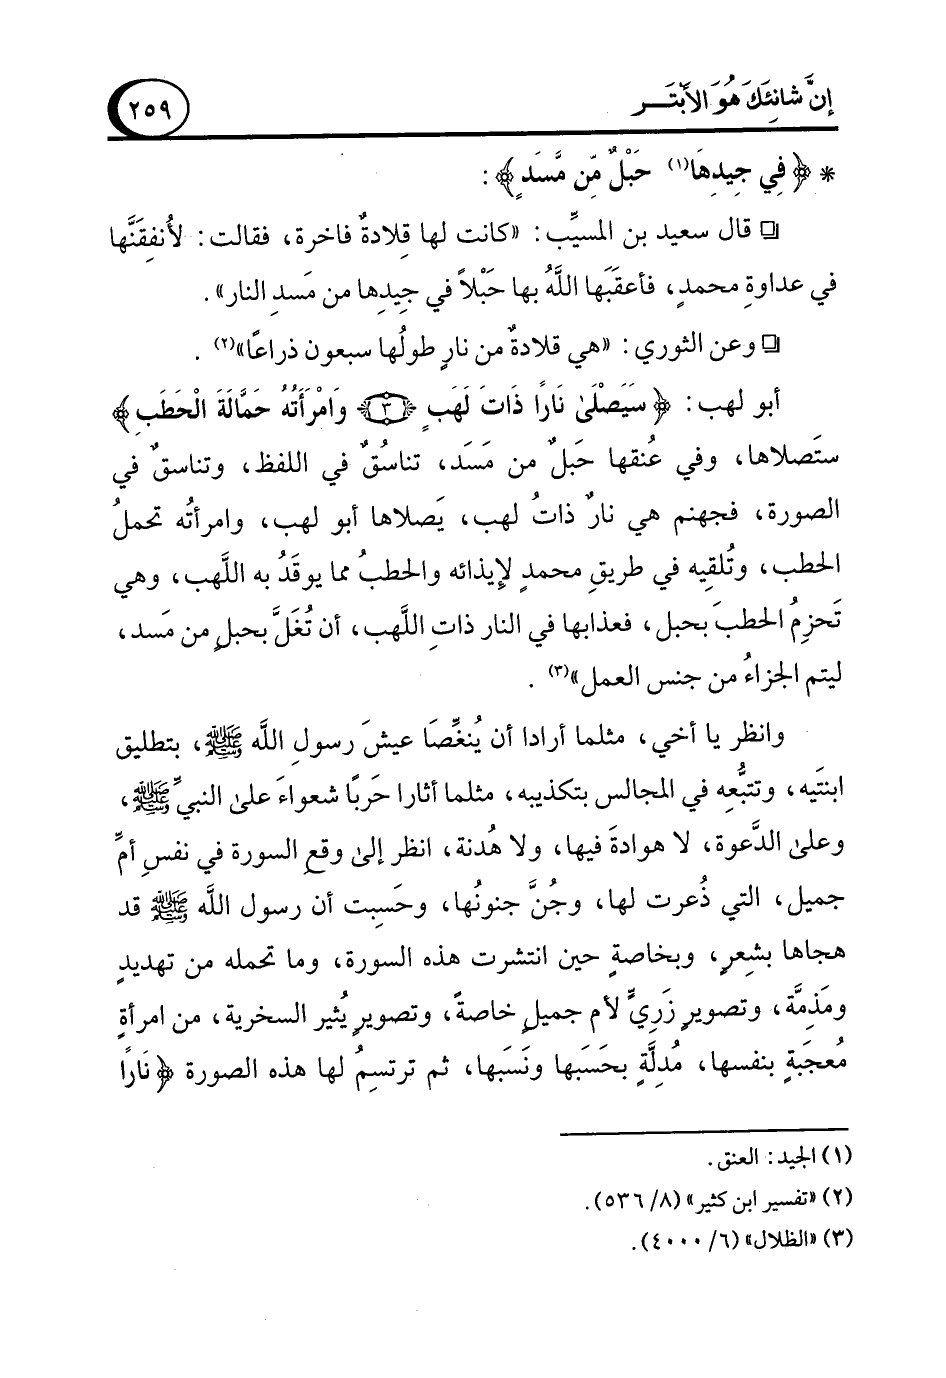 إنَّ شانِئَكَ هُوَ الأَبْتَر
٢٥٩
* ﴿فِي جِيدِهَا(١) حَبْلٌ مِّن مَّسَدٍ﴾ :
❏ قال سعيد بن المسيِّب : «كانت لها قِلادةٌ فاخرة، فقالت : لأُنفِقَنَّها
في عداوةِ محمدٍ، فأعقَبَها اللَّهُ بها حَبْلاً في جِيدِها من مَسدِ النار» .
❏ وعن الثوري : «هي قلادةٌ من نارٍ طولُها سبعون ذراعًا»(٢) .
أبو لهب : ﴿سَيَصْلَىٰ نَارًا ذَاتَ لَهَبٍ ﴿٣﴾ وَامْرَأَتُهُ حَمَّالَةَ الْحَطَبِ﴾
ستَصلاها، وفي عُنقها حَبلٌ من مَسَد، تناسُقٌ في اللفظ، وتناسقٌ في
الصورة، فجهنم هي نارٌ ذاتُ لهب، يَصلاها أبو لهب، وامرأتُه تحملُ
الحطب، وتُلقِيه في طريقِ محمدٍ لإيذائه والحطبُ مما يوقَدُ به اللَّهب، وهي
تَحزِمُ الحطبَ بحبل، فعذابها في النار ذاتِ اللَّهب، أن تُغَلَّ بحبلٍ من مَسد،
ليتم الجزاءُ من جنس العمل»(٣) .
وانظر يا أخي، مثلما أرادا أن يُنغِّصَا عيشَ رسول اللَّه ﷺ، بتطليق
ابنتَيه، وتتبُّعِه في المجالس بتكذيبه، مثلما أثارا حَربًا شعواءَ علىٰ النبيِّ ﷺ،
وعلىٰ الدَّعوة، لا هوادةَ فيها، ولا هُدنة، انظر إلىٰ وقعِ السورة في نفسِ أمِّ
جميل، التي ذُعرت لها، وجُنَّ جنونُها، وحَسِبت أن رسول اللَّه ﷺ قد
هجاها بشِعرٍ، وبخاصةٍ حين انتشرت هذه السورة، وما تحمله من تهديدٍ
ومَذِمَّة، وتصويرٍ زَرِيٍّ لأم جميلٍ خاصةً، وتصويرٍ يُثير السخرية، من امرأةٍ
مُعجَبةٍ بنفسها، مُدِلَّةٍ بحَسَبها ونَسَبها، ثم ترتسِمُ لها هذه الصورة ﴿نَارًا
(١) الجيد : العنق .
(٢) «تفسير ابن كثير» (٨/ ٥٣٦) .
(٣) «الظلال» (٦/ ٤٠٠٠) .